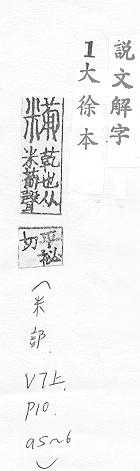 說文解字
1大徐本
糒
乾也从
米𤰈聲
平祕
切
(米部 V7上 P10 a5~6)